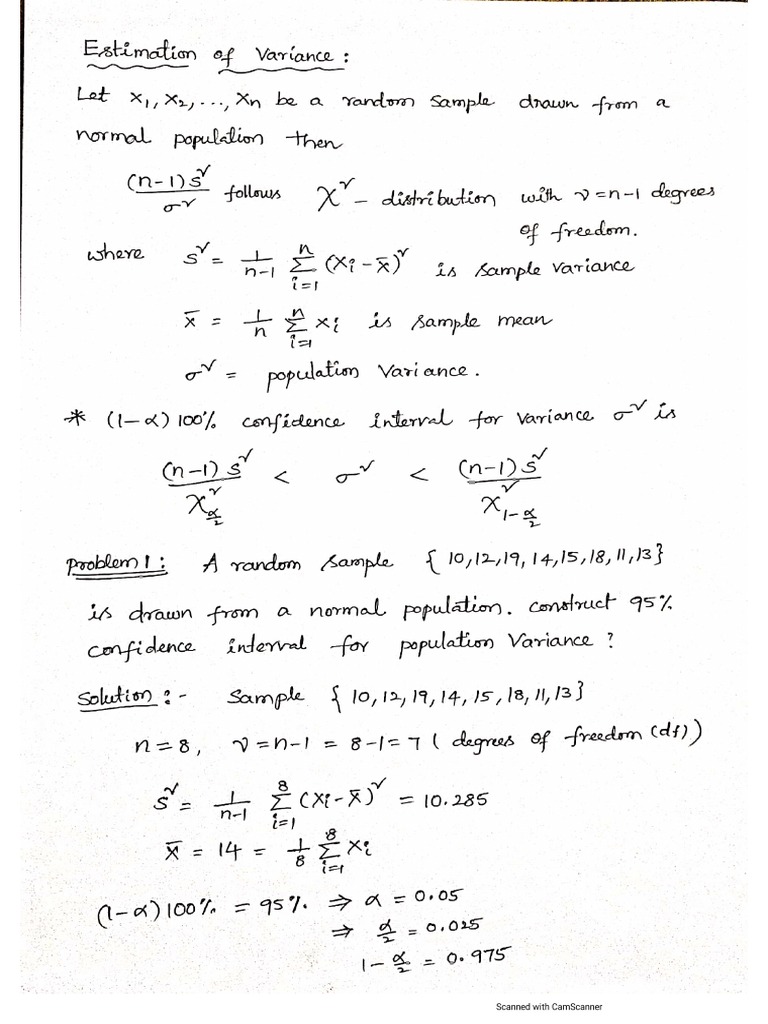 Estimation of Variance :
Let x₁, x₂, ..., xₙ be a random sample drawn from a
normal population then
(n-1)s²/σ² follows χ² - distribution with ν = n-1 degrees
of freedom.
where s² = 1/(n-1) Σᵢ₌₁ⁿ (xᵢ - x̄)² is sample variance
x̄ = 1/n Σᵢ₌₁ⁿ xᵢ is sample mean
σ² = population variance.
* (1-α)100% confidence interval for variance σ² is
(n-1)s²/χ²_{α/2} < σ² < (n-1)s²/χ²_{1-α/2}
Problem 1 : A random sample {10,12,19,14,15,18,11,13}
is drawn from a normal population. construct 95%
confidence interval for population variance ?
Solution :- Sample {10,12,19,14,15,18,11,13}
n = 8, ν = n-1 = 8-1 = 7 (degrees of freedom (df))
s² = 1/(n-1) Σᵢ₌₁⁸ (xᵢ - x̄)² = 10.285
x̄ = 14 = 1/8 Σᵢ₌₁⁸ xᵢ
(1-α)100% = 95% ⇒ α = 0.05
⇒ α/2 = 0.025
1 - α/2 = 0.975
Scanned with CamScanner